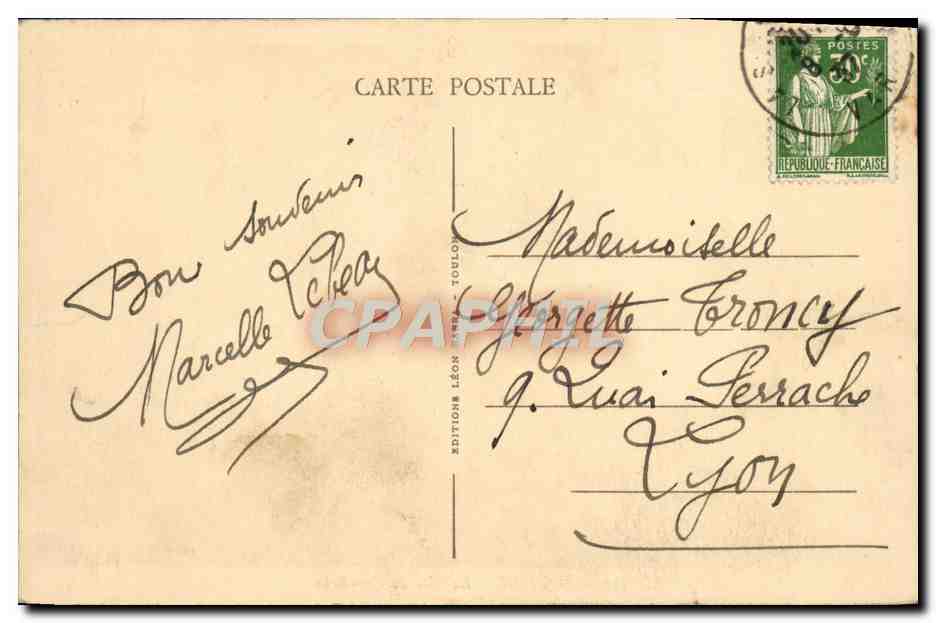 CARTE POSTALE
POSTES
30c
RÉPUBLIQUE-FRANÇAISE
Bon souvenir
Marcelle
EDITIONS LÉON - TOULON
CPAPHIL
Mademoiselle
Georgette Troncy
9. Quai Perrache
Lyon